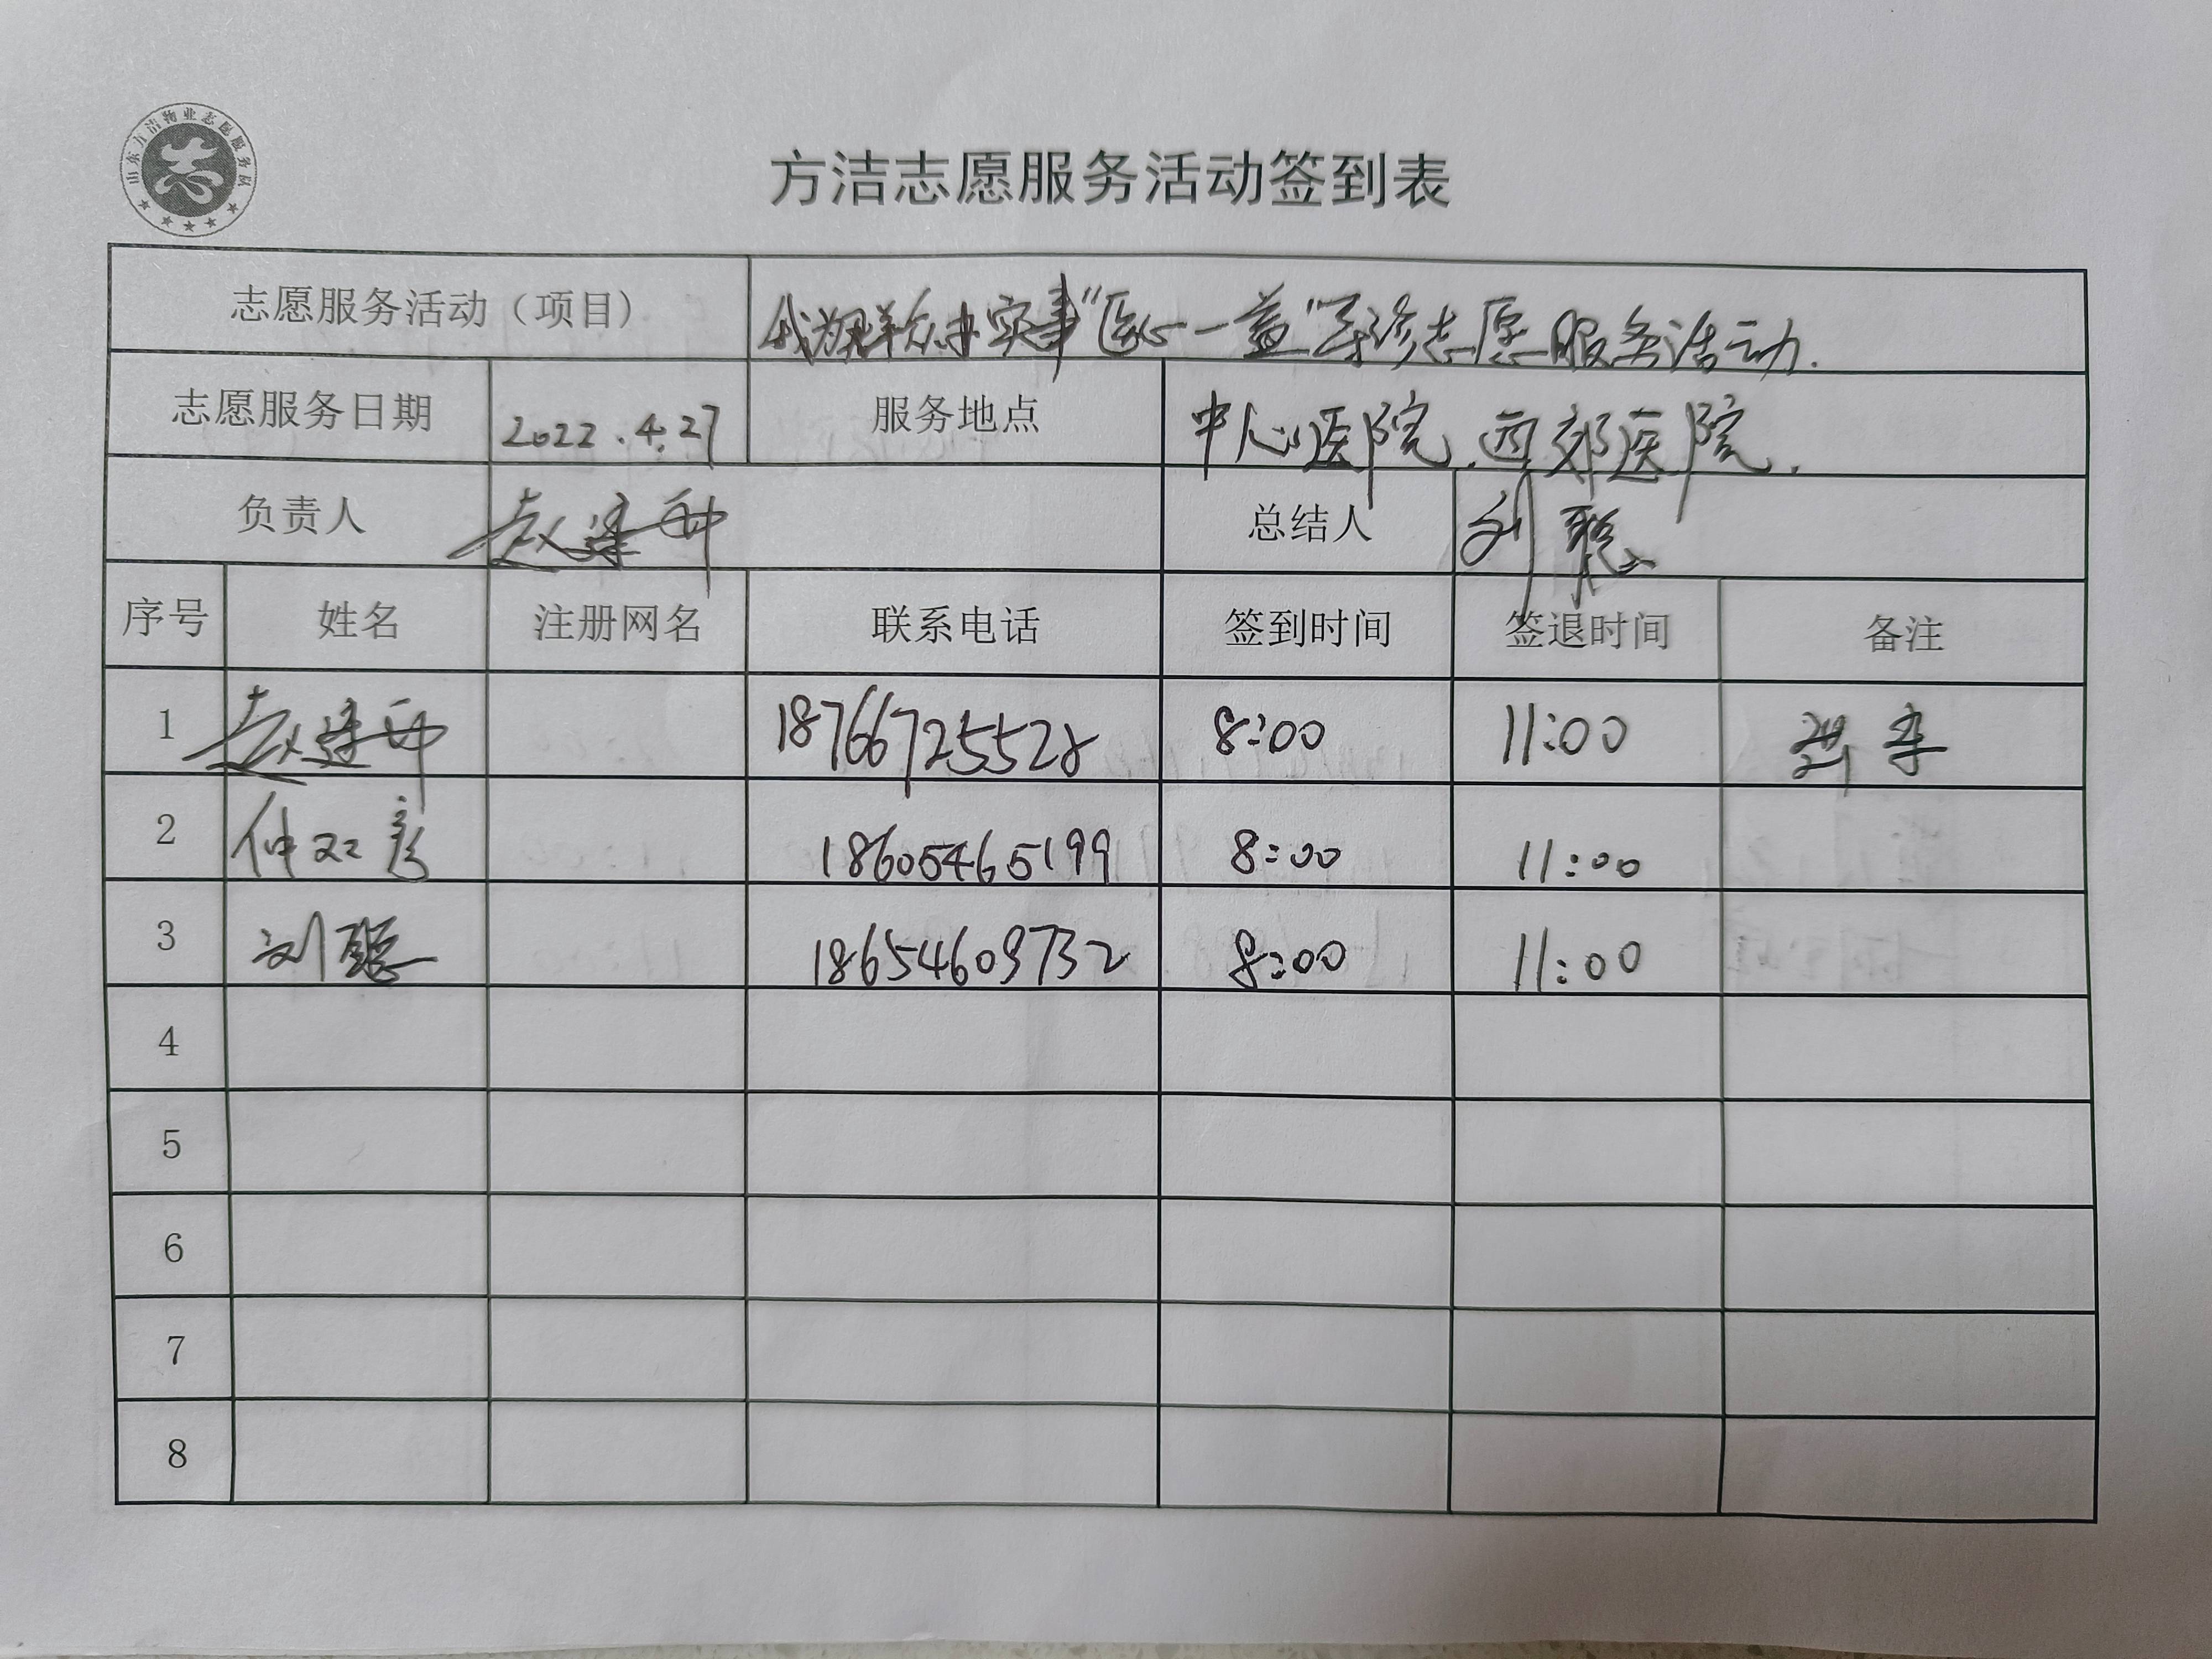 山东方洁物业志愿服务队
方洁志愿服务活动签到表
志愿服务活动（项目） 我为群众办实事“医心一益”导诊志愿服务活动.
志愿服务日期 2022.4.27 服务地点 中心医院、西郊医院.
负责人 赵建 总结人 刘聪
序号 姓名 注册网名 联系电话 签到时间 签退时间 备注
1 赵建 18766725528 8:00 11:00
2 仲双彦 18605465199 8:00 11:00
3 刘聪 18654609732 8:00 11:00
4
5
6
7
8